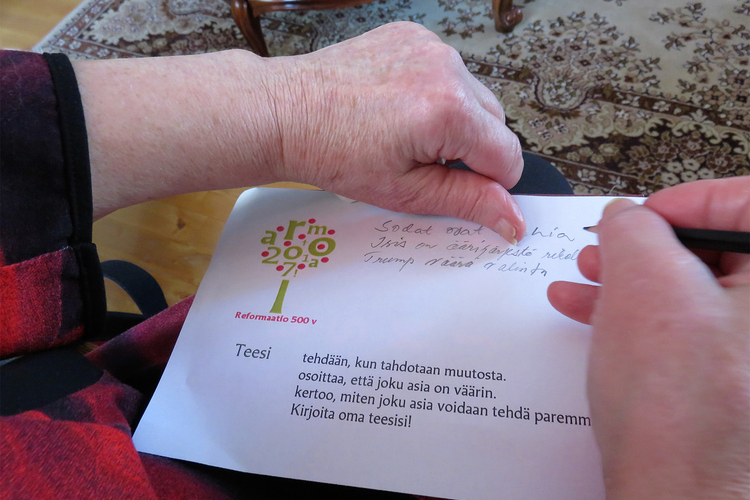 armo
2017!
Reformaatio 500 v
Sodat ovat
Isis on äärijärjestö
Trump väärä valinta
Teesi tehdään, kun tahdotaan muutosta.
osoittaa, että joku asia on väärin.
kertoo, miten joku asia voidaan tehdä paremm
Kirjoita oma teesisi!